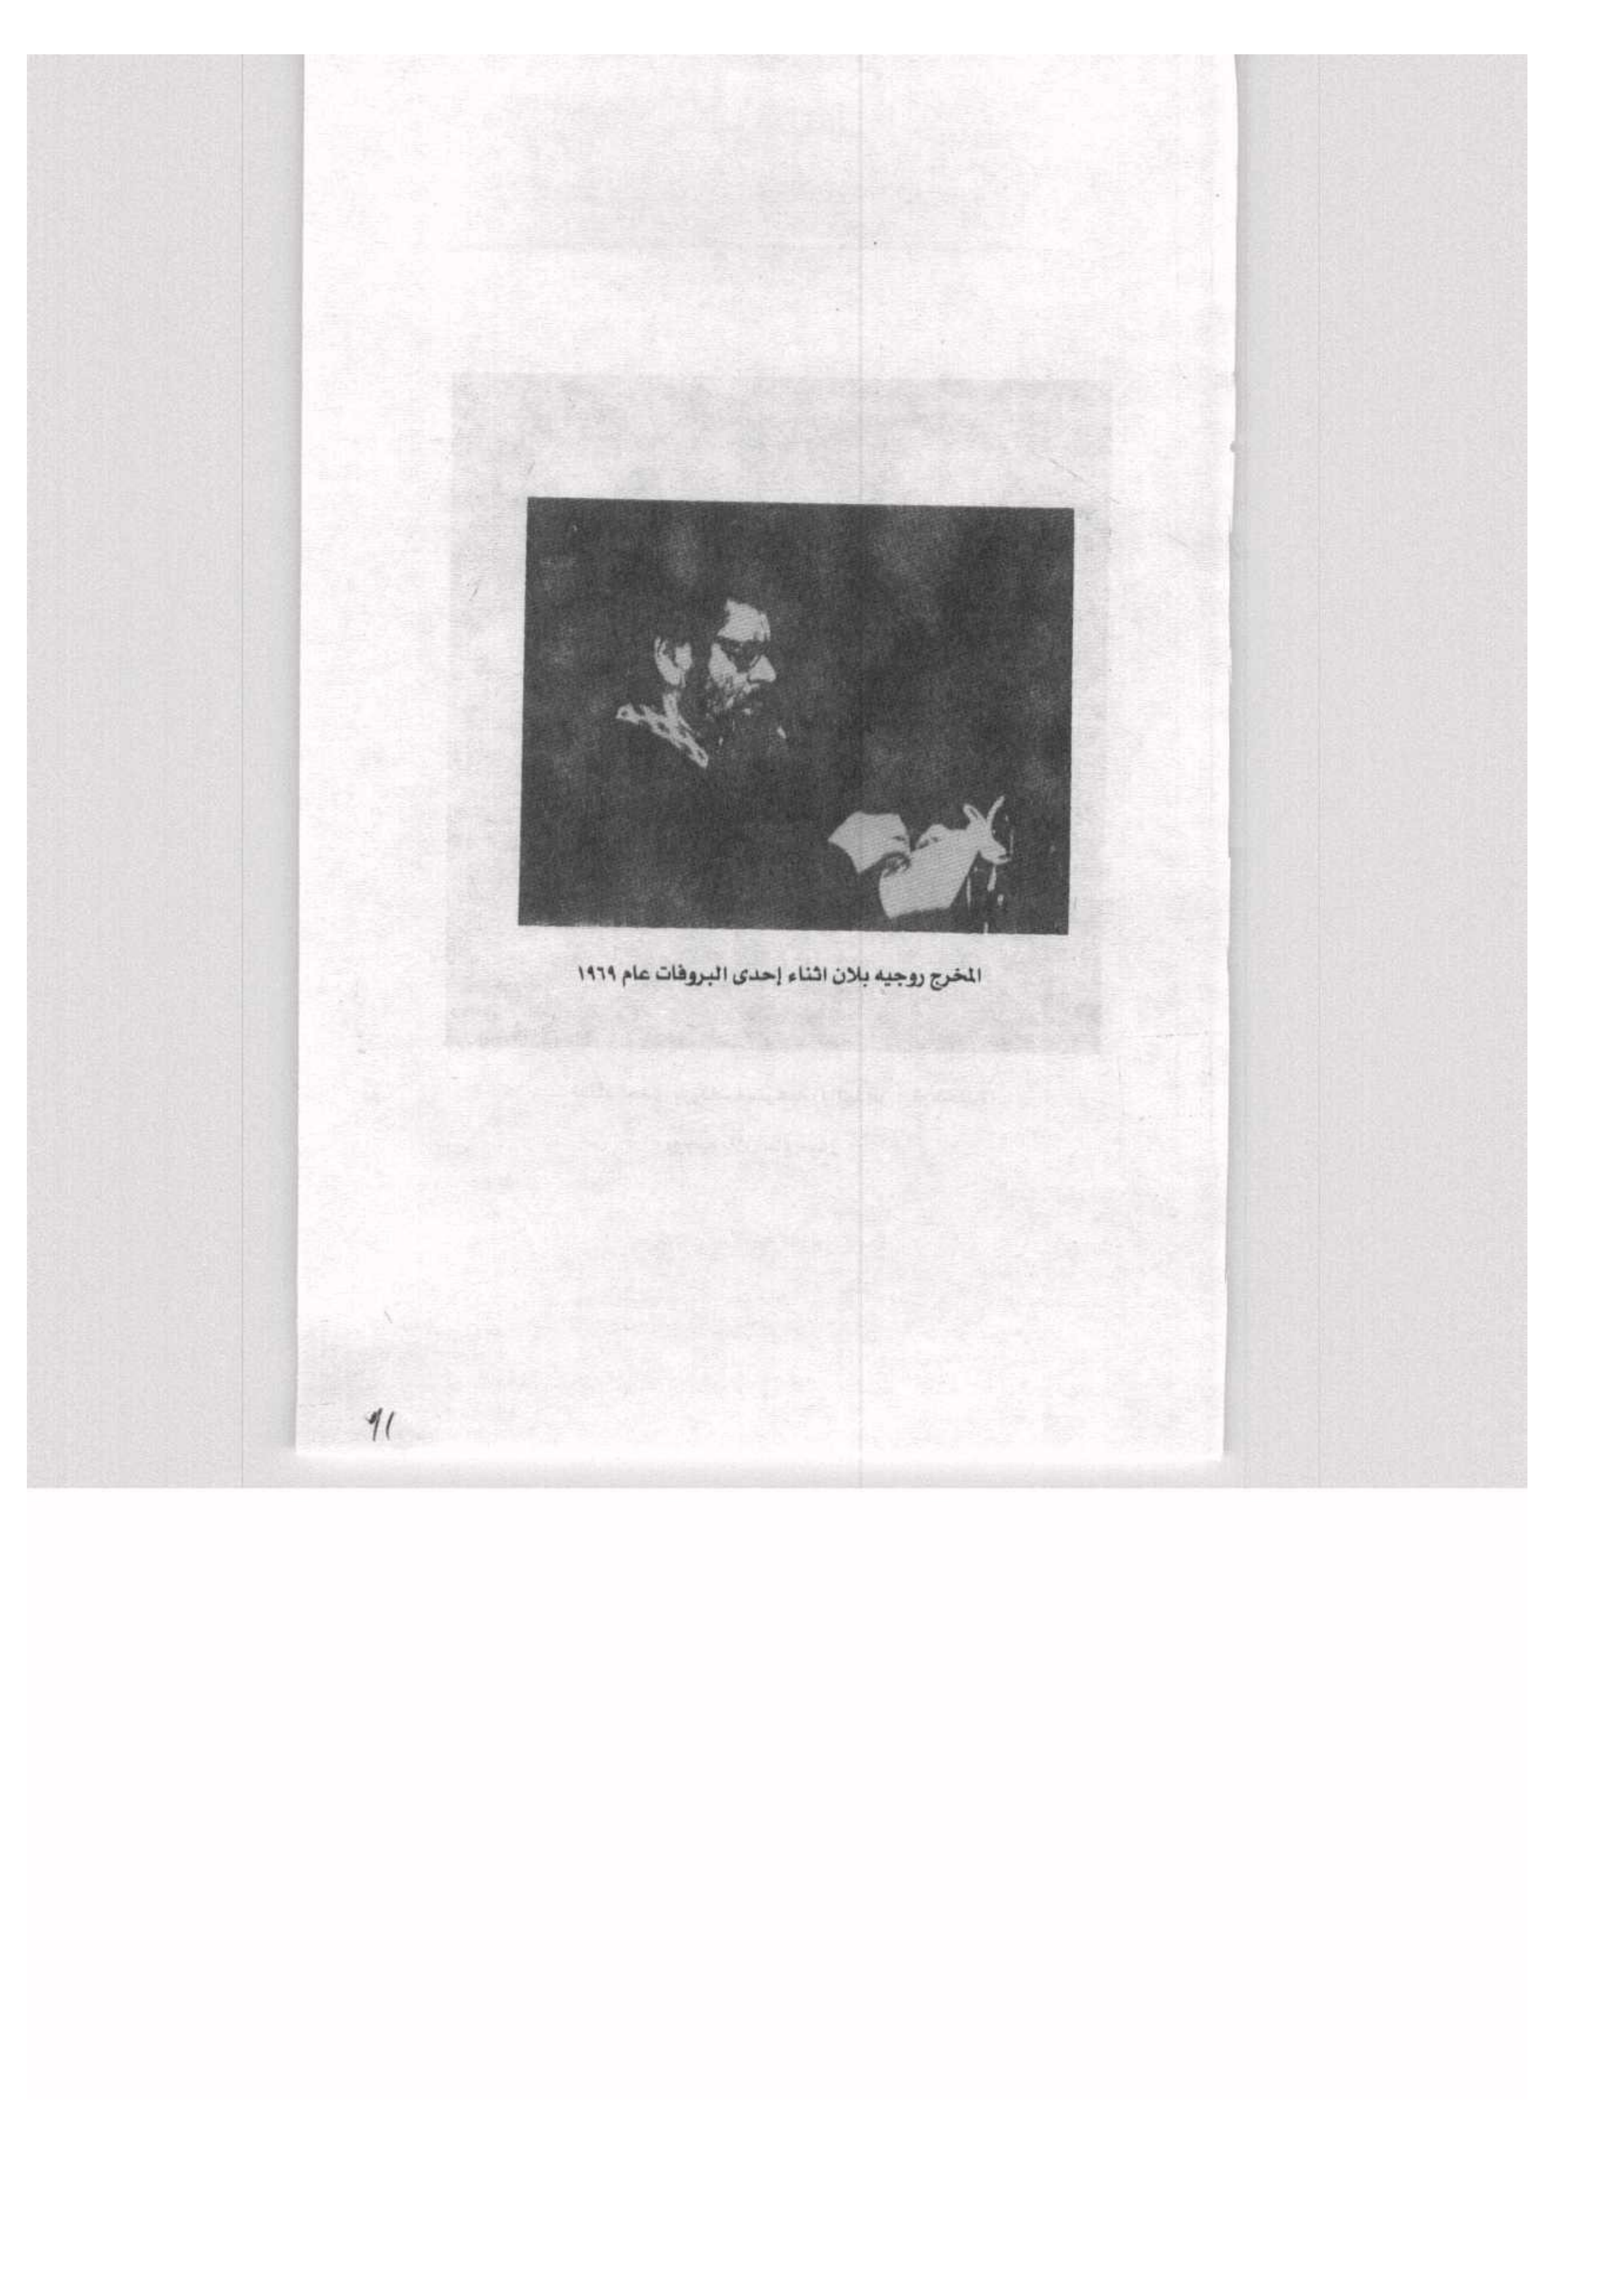 المخرج روجيه بلان اثناء إحدى البروفات عام ١٩٦٩
٩١